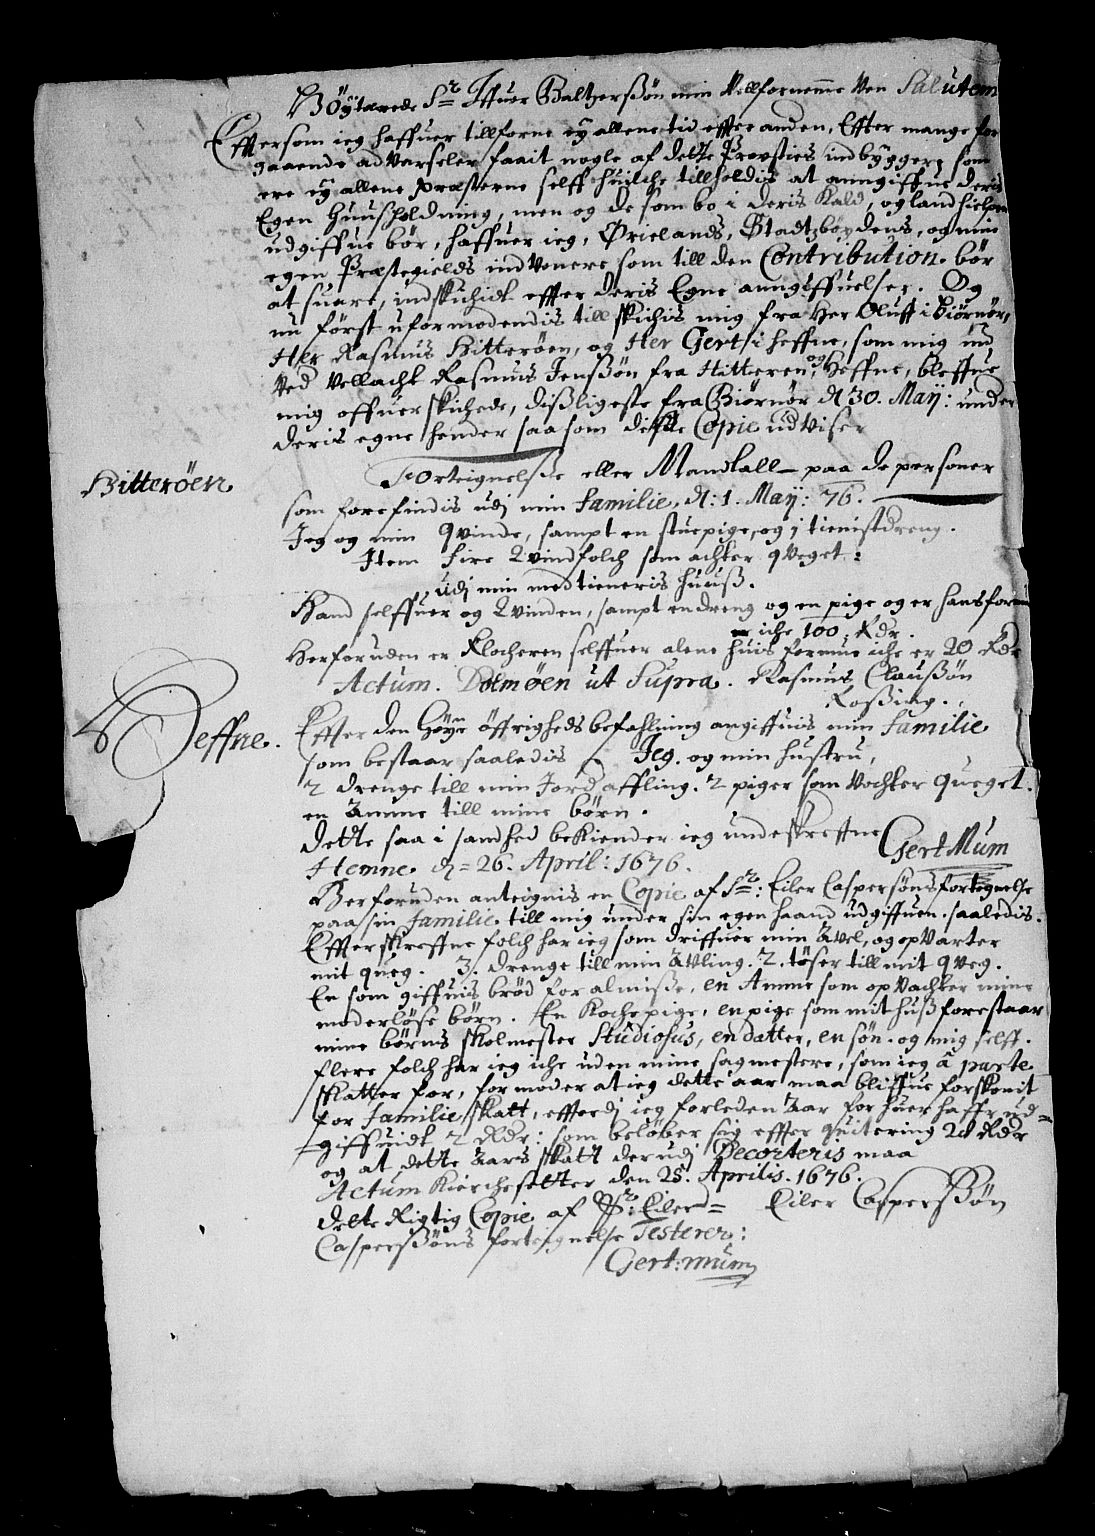 Höÿtærede Sr Iffuer Baltzersøn min Velfornemme Ven Salutem
Effter som ieg haffuer tillforne eÿ allene tid effter anden, Effter mange for
gaaende adVarseler faait nogle af dette Provsties indbÿggere som
ere eÿ allene præsterne selff huilche tillholdis at anngiffue deris
Egen Huusholdning, men og de som bo i deris Kald, og land hielpen
udgiffue bør, haffuer ieg, Ørielands, Stadtzbøÿdens, og mine
egen Præstegields indVonere som till den Contribution bør
at suare, indskichidt effter deris Egne anngiffuelser. Og
nu først uformodendis till skichis mig fra Her Oluff i Biørnør,
Her Rasmus Hitterøen, og Her Gert i heffne, som mig nu
Ved Vellacht Rasmus Jenssøn fra Hitteren og Heffne, bleffue
mig offuerskichede, disligeste fra Biørnør d 30. Maÿ: under
deris egne hender saa som dette Copie udviser
Hitterøen
Forteignelse eller Mandtall paa de personer
som forefindis udj min Familie, d: 1. Maÿ: 76.
Jeg og min Qvinde, sampt en stuepige, og 1 tienistdreng.
Item fire Qvindfolch som achter qveget:
udj min medtieneris huus.
Hand selffuer og Qvinden, sampt en dreng og en pige og er hans formue
iche 100 Rdr.
Herforuden er Klocheren selffuer alene huis formue iche er 20 Rdr
Actum. Dolmøen ut Supra. Rasmus Claussøn
Rossing.
Heffne.
Effter den Høÿe öffrigheds befahlning angiffuis min Familie
som bestaar saaledis Jeg og min hustru,
2 drenge till min Jord affling. 2 piger som Vochter queget.
en Amme till mine børn.
dette saa i sandhed bekiender ieg underskreffne
Gert Mum
Hemne d= 26. April: 1676.
Herforuden anteignis en Copie af Sr: Eiler Caspersøns fortegnelse
paa sin familie till mig under sin egen haand udgiffuen saaledis.
Effterskreffne folch har ieg som driffuer min Avel, og opVarter
mit queg. 3. drenge till min Avling. 2. tøser till mit qveg.
En som giffuis brød for almisse, en Amme som opVachter mine
moderløse børn. En Kochepige, en pige som mit huss forestaar
mine børns skolmester Studiosus, en datter, en søn og mig selff.
flere folch har ieg iche uden mine sagmestere, som ieg â parte
skatter for, formoder at ieg dette aar maa bliffue forskonit
for Familie skatt, effterdj ieg forleden Aar for huer haffr ud=
giffuidt 2 Rdr: som beløber sig effter quitering 20 Rdr
og at dette Aars skatt derudj Decorteris maa
Actum Kirchesetter den 25. Aprilis. 1676.
Eiler Casperssøn
dette Rigtig Copie af Sr: Eilerd=
Casperssøns forteignelse Testerer:
Gert: mum